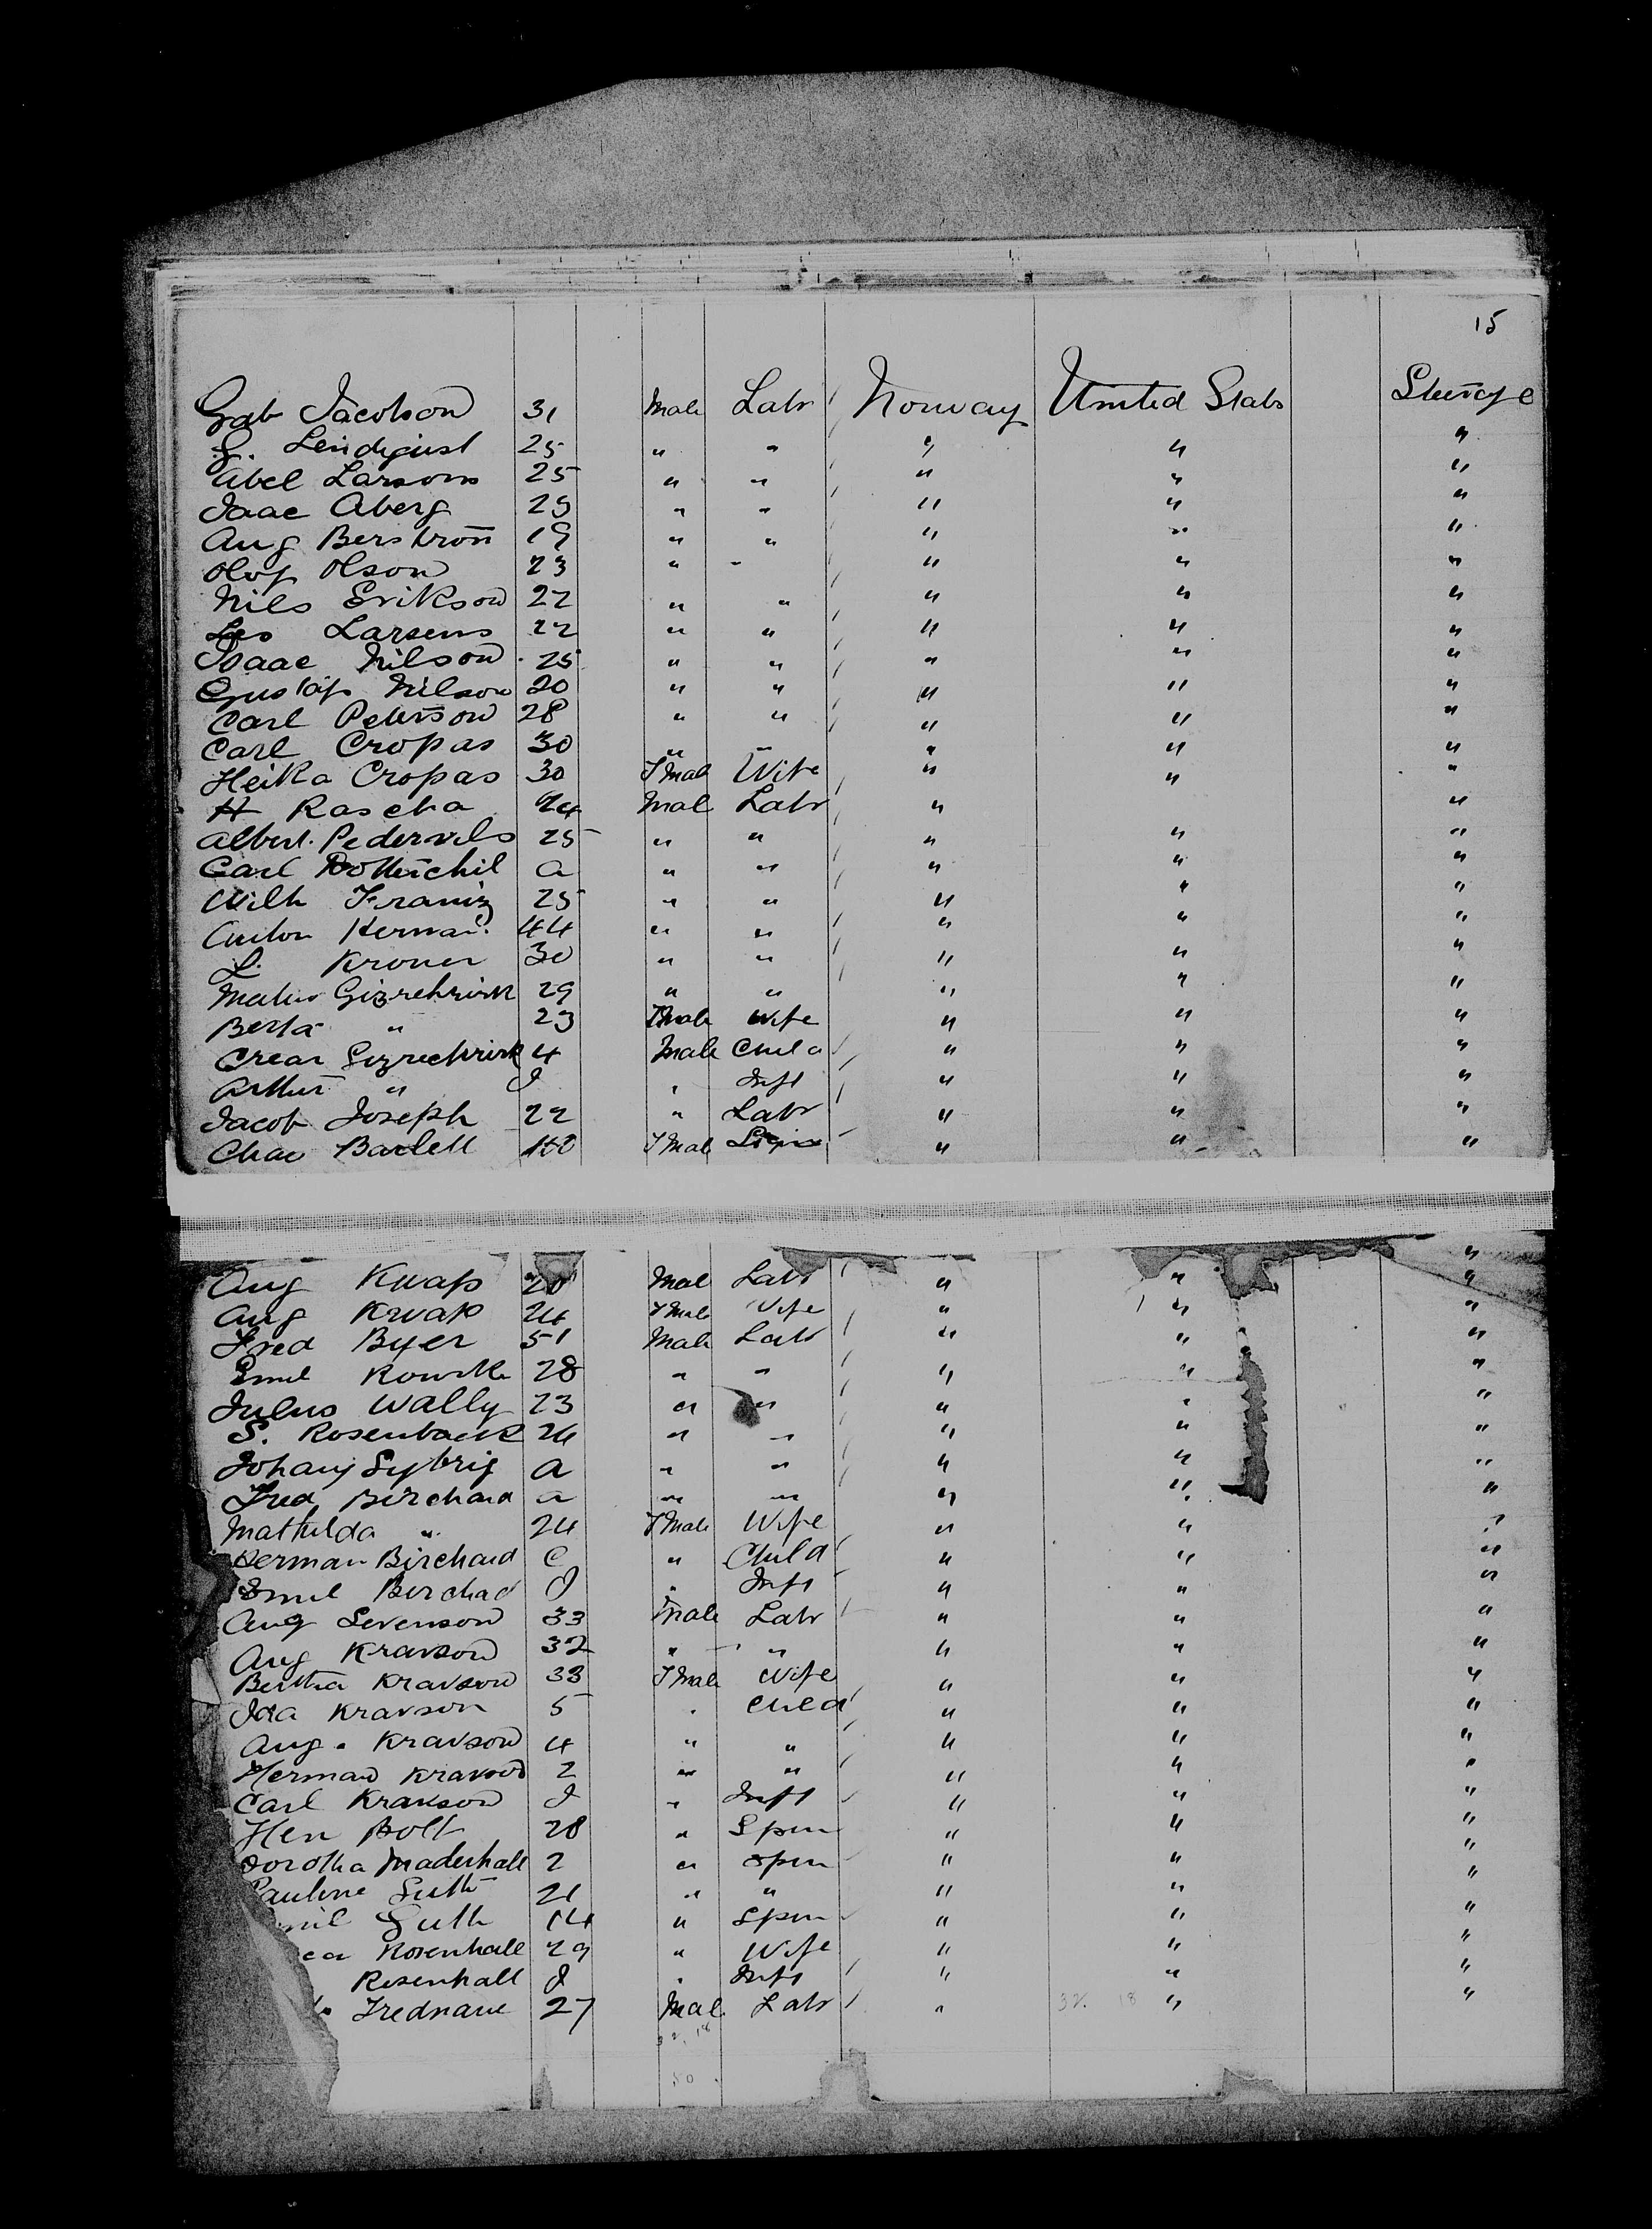 15
Gab Jacobson 31 Male Labr Norway United Stats Steerage
G. Lendquist 25 " " " " "
Abel Larsons 25 " " " " "
Isaac Aberg 25 " " " " "
Aug Berstrom 19 " " " " "
Olof Olson 23 " " " " "
Nils Erikson 22 " " " " "
Leo Larsens 22 " " " " "
Isaac Nilson 25 " " " " "
Gustaf Nilson 20 " " " " "
Carl Peterson 28 " " " " "
Carl Cropas 30 " " " " "
Heika Cropas 30 F Male Wife " " "
H Rascha 24 Mal Labr " "
Albert. Pedervils 25 " " " " "
Carl Rotterchil a " " " " "
Wilh Franiz 25 " " " " "
Anton Herman 44 " " " " "
L. Kroner 30 " " " " "
Gizrehrink 29 " " " " "
Berta " 23 F Male Wife " " "
Gizrechrink 4 Male Child " " "
Arthur " I " Inft " " "
Jacob Joseph 22 " Labr " " "
Chas Bartell F Mal " " "
Aug Knap 20 Mal Labr " " "
Aug Knap 24 F Male Wife " " "
Fred Byer 51 Male Labr " " "
Emil 28 " " " " "
Julius Wally 23 " " " " "
S. Rosenback 24 " " " " "
Sybrig a " " " " "
Fred Birchard a " " " " "
Mathilda " 24 F Male Wife " " "
Herman Birchard C " Child " " "
Emil Birchad I " Inft " " "
Aug Sevenson 33 Male Labr " " "
Aug Kravson 32 " " " " "
Bertha Kravson 33 F Male Wife " " "
Ida Kravson 5 " Child " " "
Aug. Kravson 4 " " " " "
Herman Kravson 2 " " " " "
Carl Kravson I " Inft " " "
Hen Bolt 28 " Spin " " "
Dorotha Maderhall 2 " Spin " " "
Pauline Guth 21 " " " " "
Guth 14 " Spin " " "
Rosenhall 29 " Wife " " "
Rosenhall I " Inft " " "
Frednane 27 Mal Labr " 32. 18 " "
32. 18
50